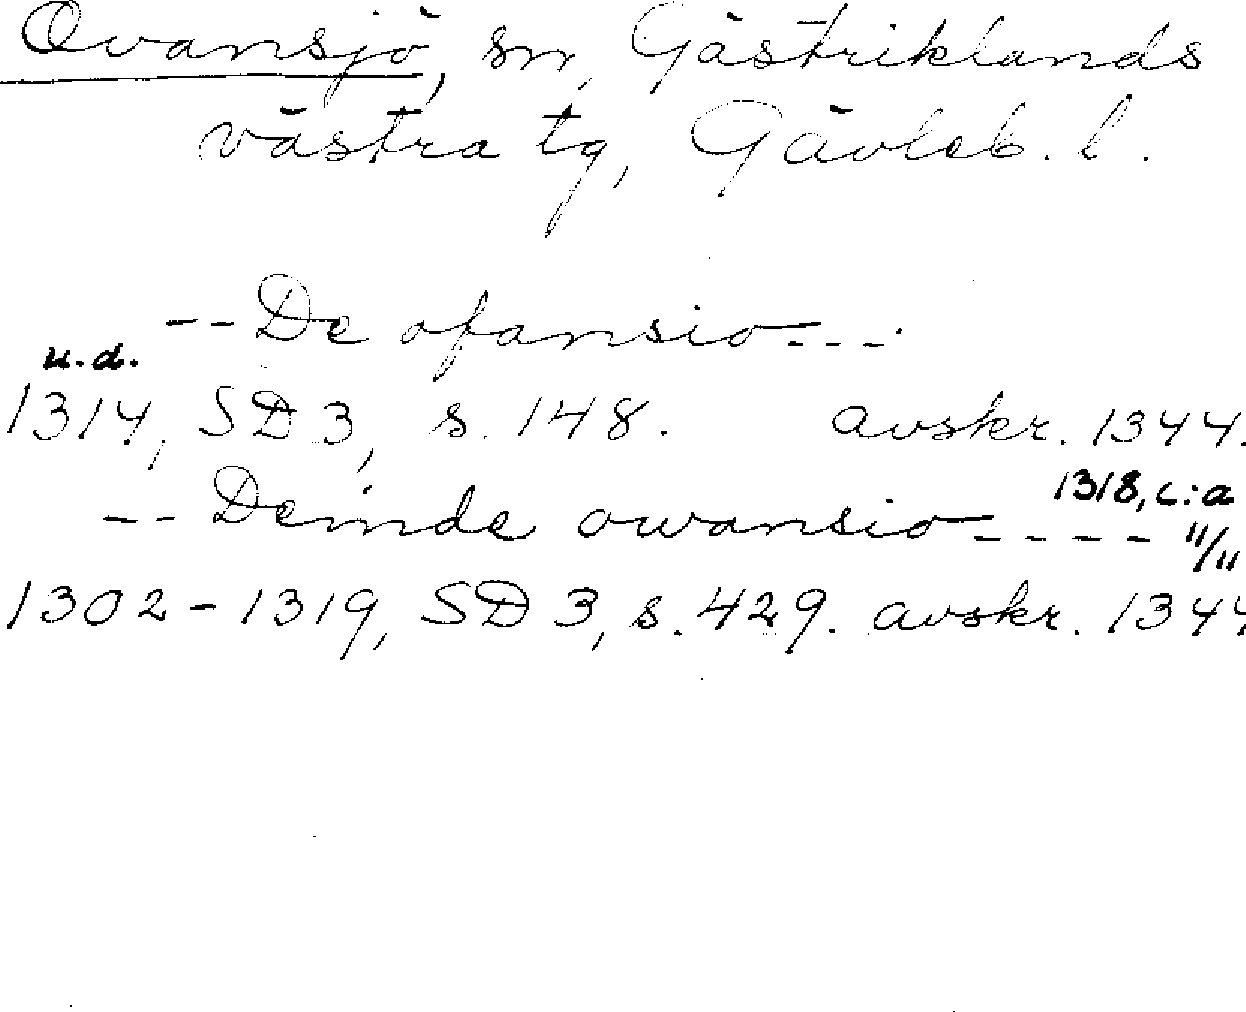 Ovansjö, sn, Gästriklands
västra tg, Gävleb. l.
-- De ofansio---.
u.d.
1314, SD 3, s. 148. avskr. 1344.
1318, c:a
-- Deinde owansio---- 11/11
1302-1319, SD 3, s. 429. avskr. 1344